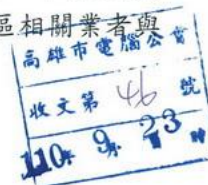 區相關業者與
高雄市電腦公會
收文第 46 號
110年 9月 23 時